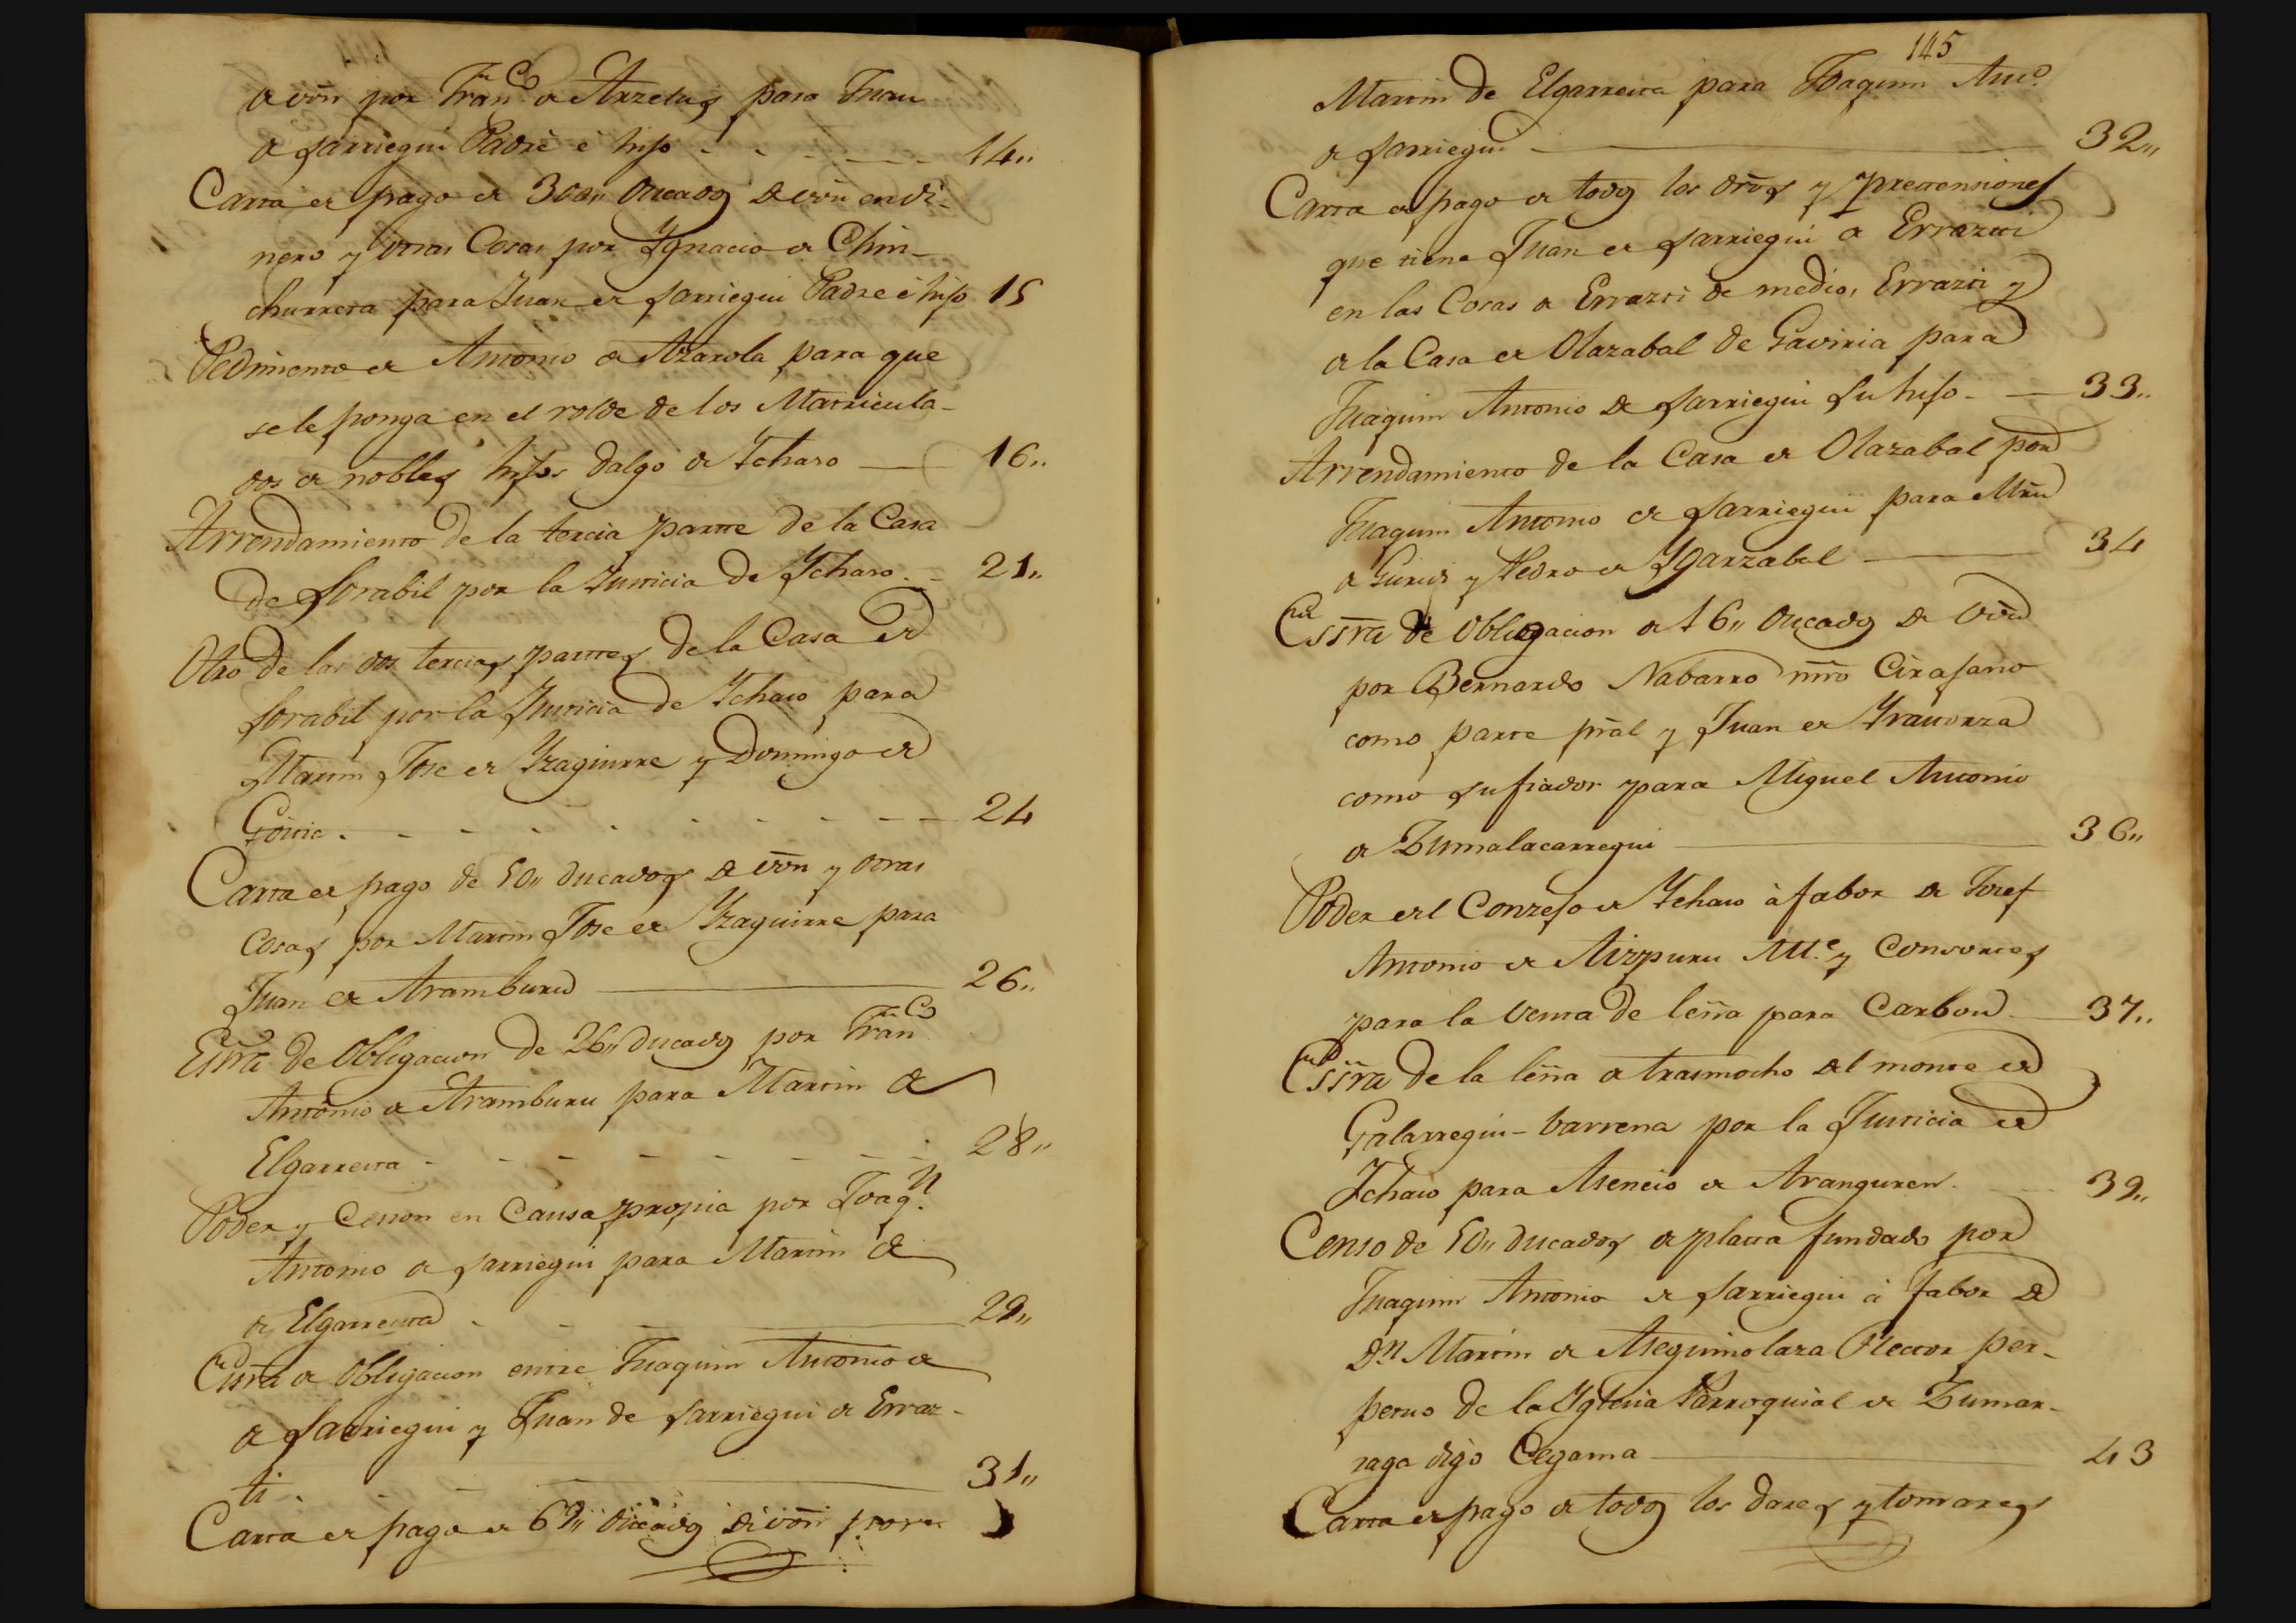 de vōn por Fran.co de Arzelus para Juan
de Sarriegui Padre è hijo - - - - - 14,,
Carta de pago de 300,, ducados de vōn en di-
nero y otras Cosas por Ygnacio de Chin-
churreta para Juan de Sarriegui Padre è hijo 15
Pedimento de Antonio de Azarola para que
se le ponga en el rolde de los Matricula-
dos de nobles hijos dalgo de Ychaso — 16,,
Arrendamiento de la tercia parte de la Casa
de Sorabil por la Justicia de Ychaso - - 21,,
Otro de las dos tercias partes de la Casa de
Sorabil por la Justicia de Ychaso para
Martin Jose de Yzaguirre y Domingo de
Goitia - - - - - - - - - 24
Carta de pago de 50,, ducados de vōn y otras
Cosas por Martin Jose de Yzaguirre para
Juan de Aramburu — 26,,
Esrra de Obligacion de 26,, ducados por Fran.co
Antonio de Aramburu para Martin de
Elgarresta - - - - - - - 28,,
Poder y Cesion en Causa propia por Joaq.n
Antonio de Sarriegui para Martin de
de Elgarresta - - — 29,,
Esrra de Obligacion entre Juaquin Antonio de
de Sarriegui y Juan de Sarriegui de Erraz-
ti - - - — 31,,
Carta de pago de 69,, ducados de vōn por
145
Martin de Elgarresta para Joaquin Ant.o
de Sarriegui — 32,,
Carta de pago de todos los drōs y pretensiones
que tiene Juan de Sarriegui de Errazti
en las Casas de Errazti de medio, Errazti y
de la Casa de Olazabal de Gaviria para
Juaquim Antonio de Sarriegui su hijo - — 33,,
Arrendamiento de la Casa de Olazabal por
Juaquim Antonio de Sarriegui para Mrñ
de Guridi y Pedro de Ygarzabal — 34
Essra de Obligacion de 16,, ducados de vōn
por Bernardo Nabarro mrō Cirujano
como parte prāl y Juan de Yraeorza
como su fiador para Miguel Antonio
de Zumalacarregui — 36,,
Poder del Conzejo de Ychaso à fabor de Josef
Antonio de Aizpuru Alt.e y Consortes
para la venta de leña para Carbon — 37,,
Essra de la leña de trasmocho del monte de
Galarregui-barrena por la Justicia de
Ychaso para Asencio de Aranguren - — 39,,
Censo de 50,, ducados de plata fundado por
Juaquin Antonio de Sarriegui à fabor de
Dn Martin de Aseguinolaza Rector per-
petuo de la Yglesia Parroquial de Zumar-
raga digo Cegama — 43
Carta de pago de todos los dares y tomares